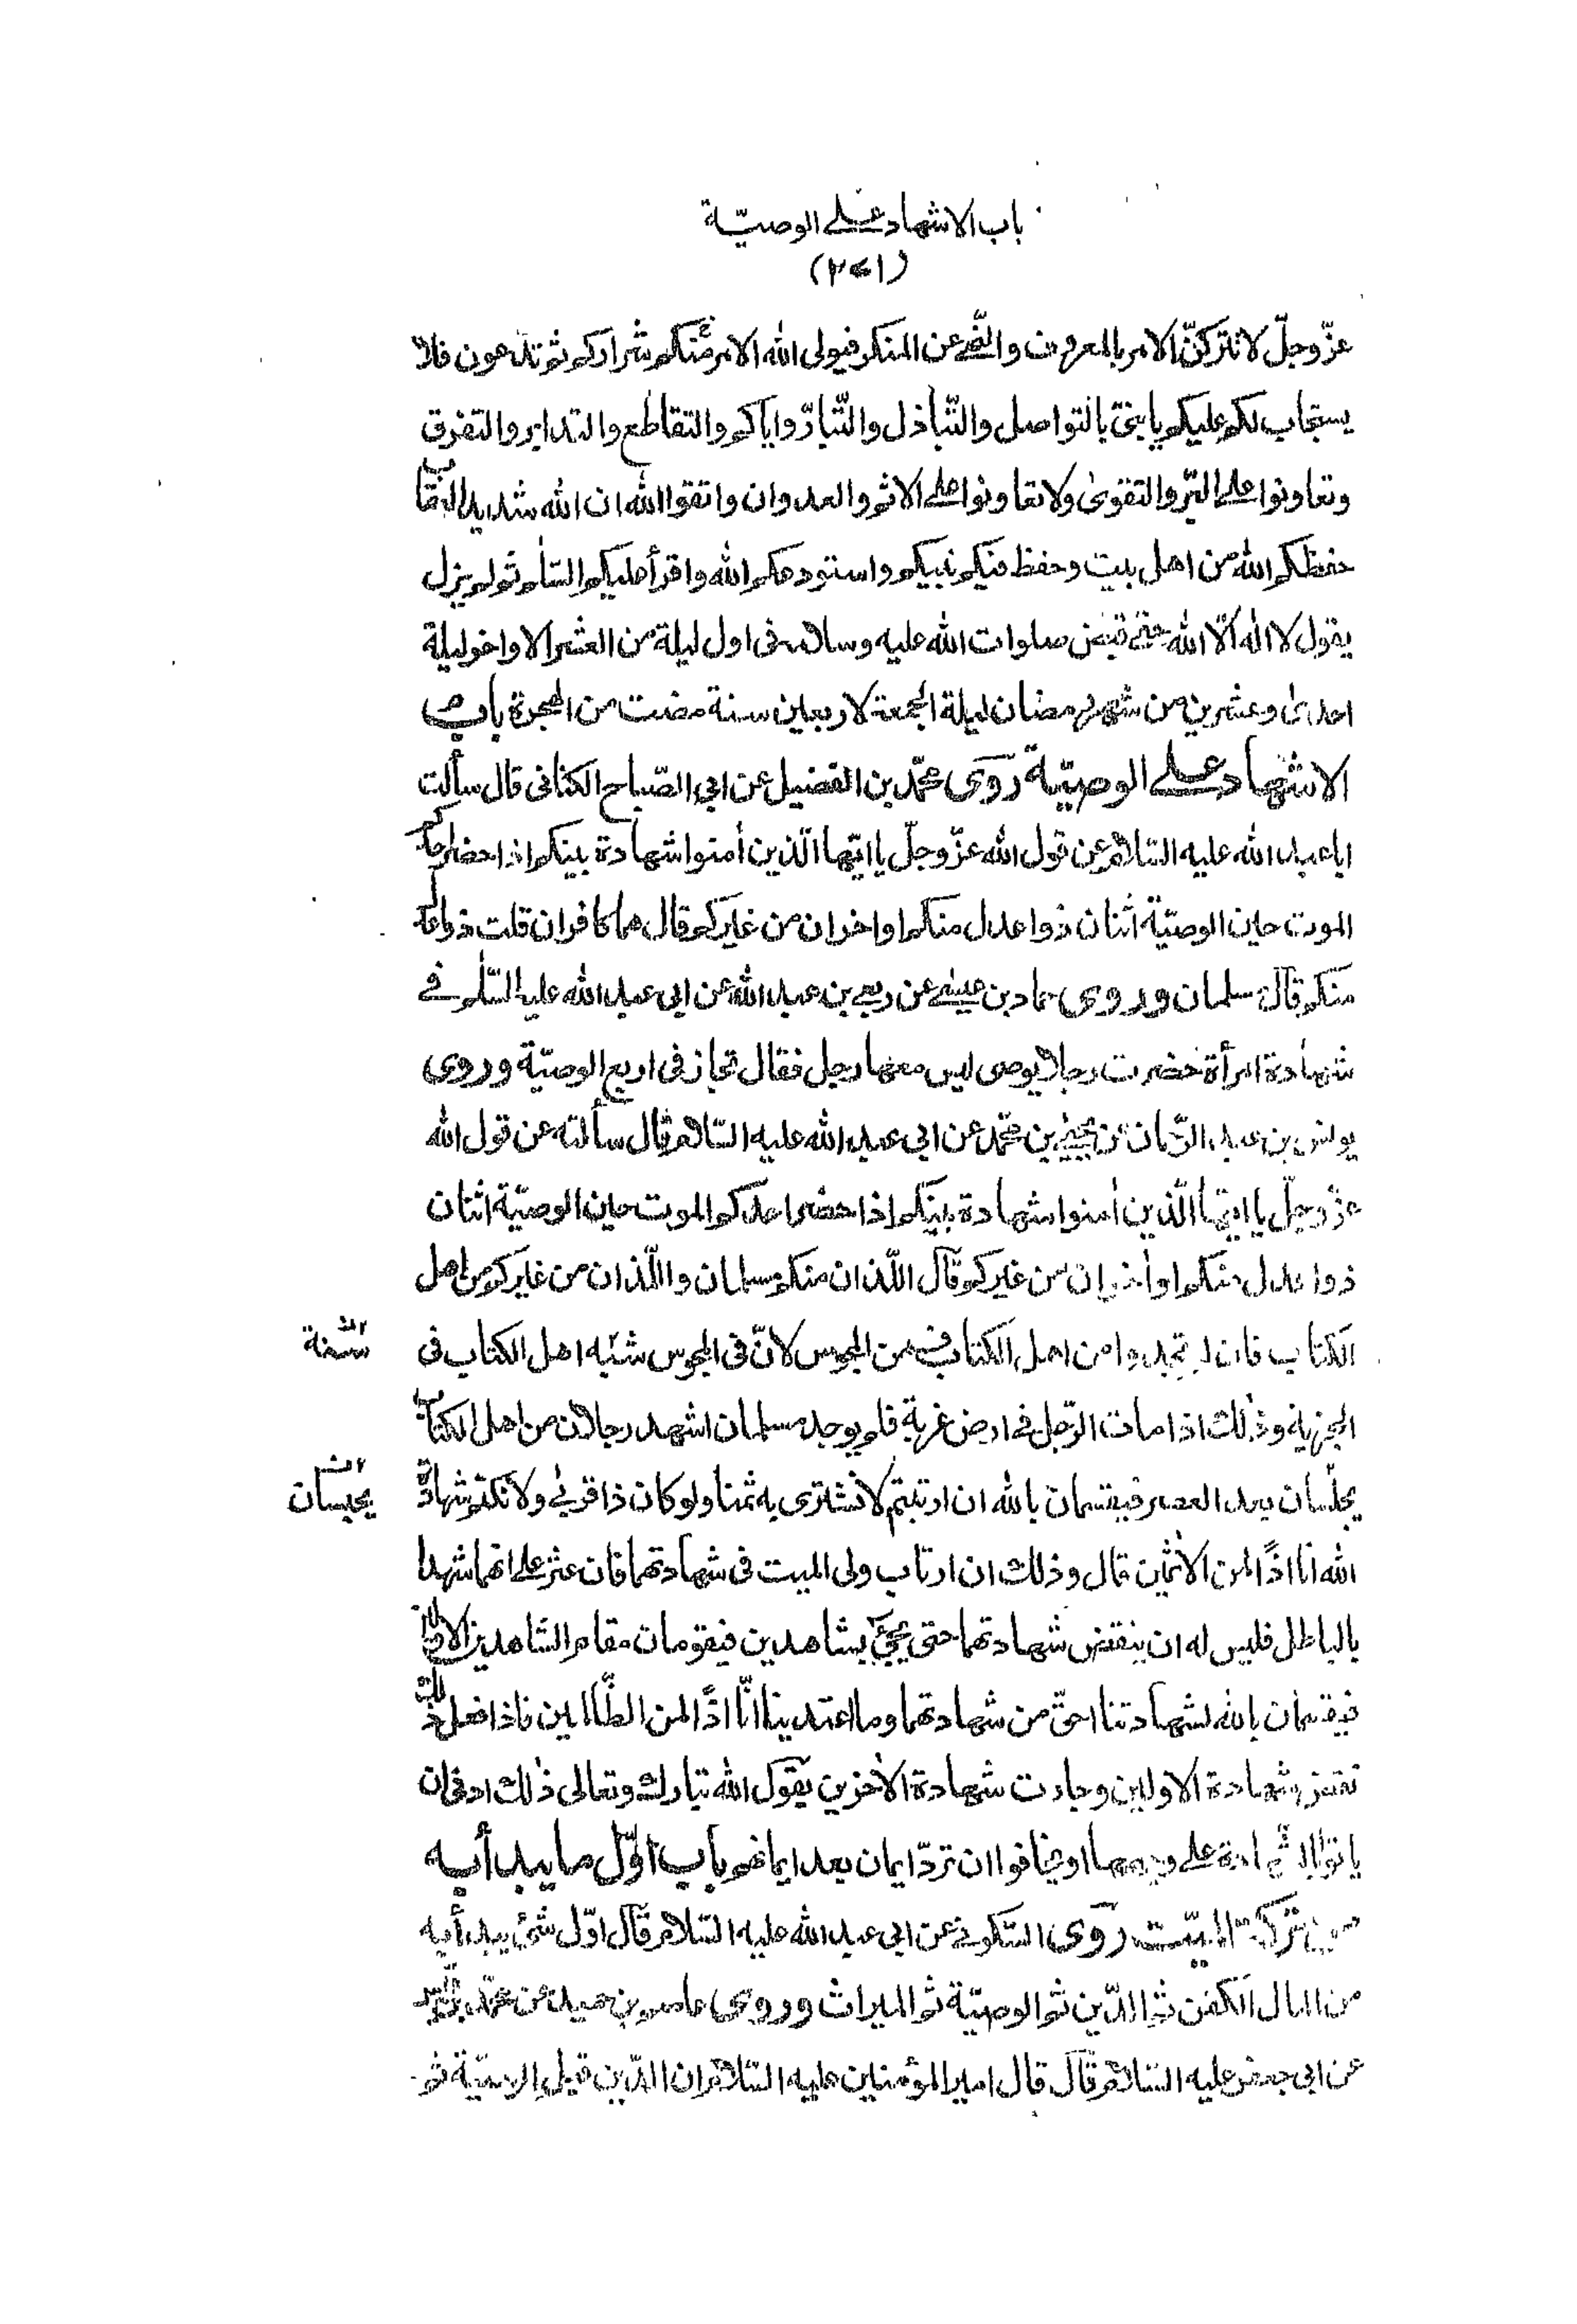 باب الاشهاد على الوصيّة
(٢٧١)
عزّ وجلّ لا تتركنّ الامر بالمعروف والنّهى عن المنكر فيولى الله الامر منكم شراركم ثم تدعون فلا
يستجاب لكم عليكم يا بنىّ بالتواصل والتّباذل والتّبارّ واياكم والتقاطع والتدابر والتفرق
وتعاونوا على البرّ والتقوىٰ ولا تعاونوا على الاثم والعدوان واتقوا الله ان الله شديد العقاب
حفظكم الله من اهل بيت وحفظ فيكم نبيكم واستودعكم الله واقرأ عليكم السّلٰم ثم لم يزل
يقول لا اله الّا الله حتى قبض صلوات الله عليه وسلامه فى اول ليلة من العشر الاواخر ليلة
احدىٰ وعشرين من شهر رمضان ليلة الجمعة لاربعين سنة مضت من الهجرة باب
الاشهاد على الوصيّة روى محمّد بن الفضيل عن ابى الصّباح الكنانى قال سألت
ابا عبد الله عليه السّلام عن قول الله عزّ وجلّ يا ايّها الّذين اٰمنوا شهادة بينكم اذا حضر احدكم
الموت حين الوصيّة اثنان ذوا عدل منكم او اخران من غيركم قال هما كافران قلت ذوا عدل
منكم قال مسلمان وروى حماد بن عيسٰى عن ربعى بن عبد الله عن ابى عبد الله عليه السّلٰم فى
شهادة امرأة حضرت رجلا يوصى ليس معها رجل فقال تجاز فى اربع الوصيّة وروى
يونس بن عبد الرّحمان عن يحيى بن محمّد عن ابى عبد الله عليه السّلام قال سألته عن قول الله
عزّ وجلّ يا ايّها الّذين اٰمنوا شهادة بينكم اذا حضر احدكم الموت حين الوصيّة اثنان
ذوا عدل منكم او اٰخران من غيركم قال اللّذان منكم مسلمان واللّذان من غيركم من اهل
الكتاب فان لم تجدوا من اهل الكتاب فمن المجوس لانّ فى المجوس شبه اهل الكتاب فى
سنة
الجزية وذٰلك اذا مات الرّجل فى ارض غربة فلم يوجد مسلمان اشهد رجلان من اهل الكتاب
يجلّسان بعد العصر فيقسمان بالله ان ارتبتم لا نشترى به ثمنا ولو كان ذا قربى ولا نكتم شهادة
يحبسان
الله انا اذًا لمن الاٰثمين قال وذلك ان ارتاب ولى الميت فى شهادتهما فان عثر على انهما شهدا
بالباطل فليس له ان ينقض شهادتهما حتى يجيئ بشاهدين فيقومان مقام الشاهدين الاولين
فيقسمان بالله لشهادتنا احقّ من شهادتهما وما اعتدينا انّا اذًا لمن الظّالمين فاذا فعل ذلك
نقض شهادة الاولين وجازت شهادة الاٰخرين يقول الله تبارك وتعالى ذٰلك ادنى ان
ياتوا بالشّهادة على وجهها او يخافوا ان تردّ ايمان بعد ايمانهم باب اوّل ما يبدأ به
من تركة الميّت روى السّكونى عن ابى عبد الله عليه السّلام قال اوّل شئ يبدأ به
من المال الكفن ثم الدّين ثم الوصيّة ثم الميراث وروى عاصم بن حميد عن محمّد بن قيس
عن ابى جعفر عليه السّلام قال قال امير المؤمنين عليه السّلام ان الدّين قبل الوصيّة ثم